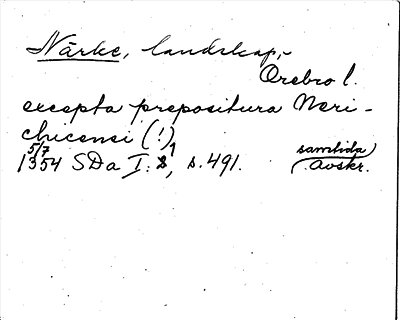 Närke, landskap,
Örebro l.
excepta prepositura Neri-
chicensi (!)
5/7
1354 SDa I:1, s. 491.
samtida
avskr.